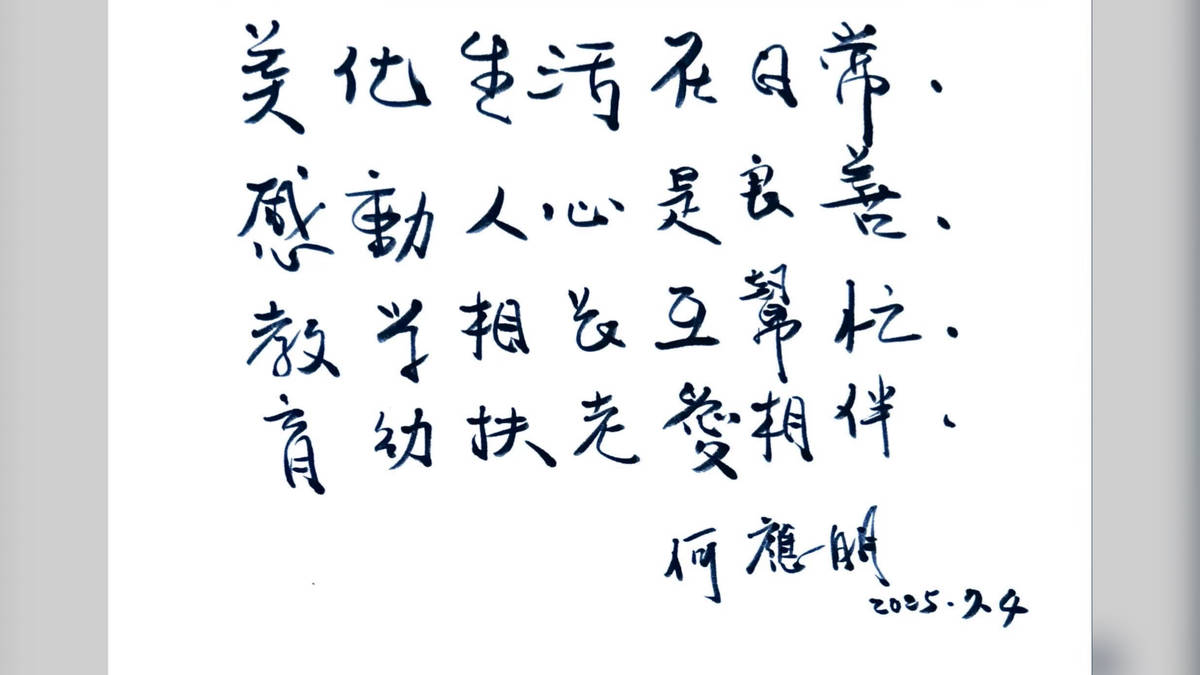 美化生活在日常.
感動人心是良善.
教学相长互幫忙.
育幼扶老愛相伴.
何應明
2025.7.4